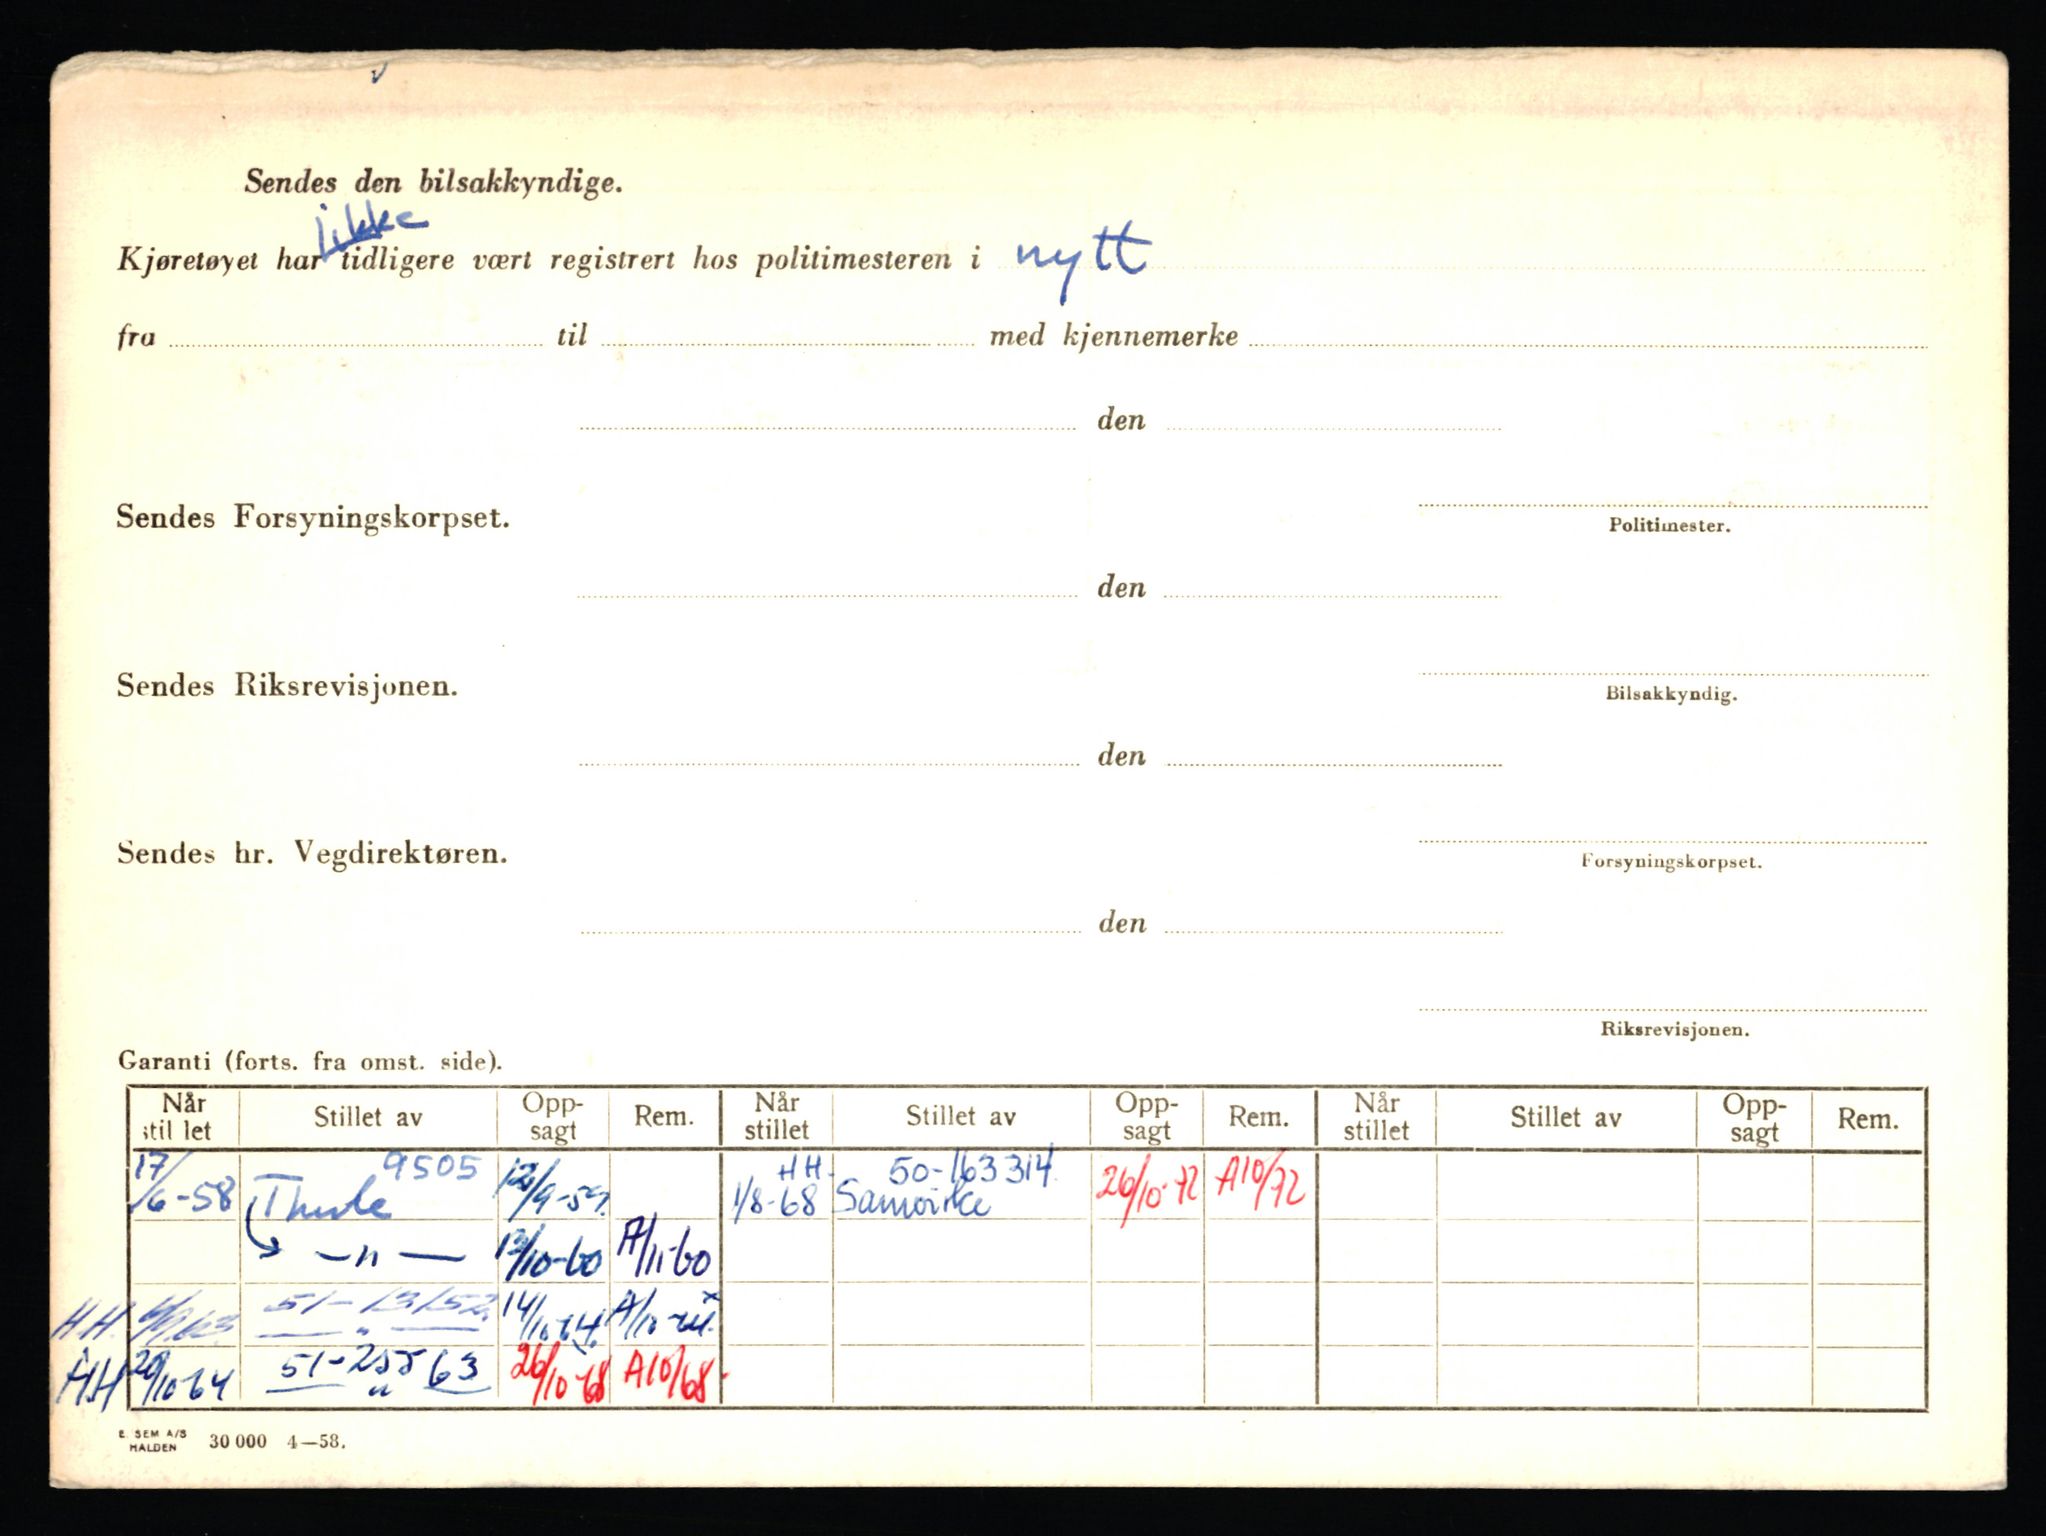 Sendes den bilsakkyndige.
ikke
Kjøretøyet har tidligere vært registrert hos politimesteren i nytt
fra til med kjennemerke
den
Politimester.
Sendes Forsyningskorpset.
den
Bilsakkyndig.
Sendes Riksrevisjonen.
den
Forsyningskorpset.
Sendes hr. Vegdirektøren.
den
Riksrevisjonen.
Garanti (forts. fra omst. side).
Når stil let Stillet av Opp- sagt Rem. Når stillet Stillet av Opp- sagt Rem. Når stillet Stillet av Opp- sagt Rem.
17/6-58 Thule 9505 12/9-59. HH. 1/8-68 50-163314 Samvirke 26/10-72 A10/72
—"— 12/10-60 A/11-60
HH. 51-13152 —"— 14/10-64.
HH 20/10-64 51-25563 —"— 26/10-68 A10/68-
E. SEM A/S HALDEN 30 000 4—58.